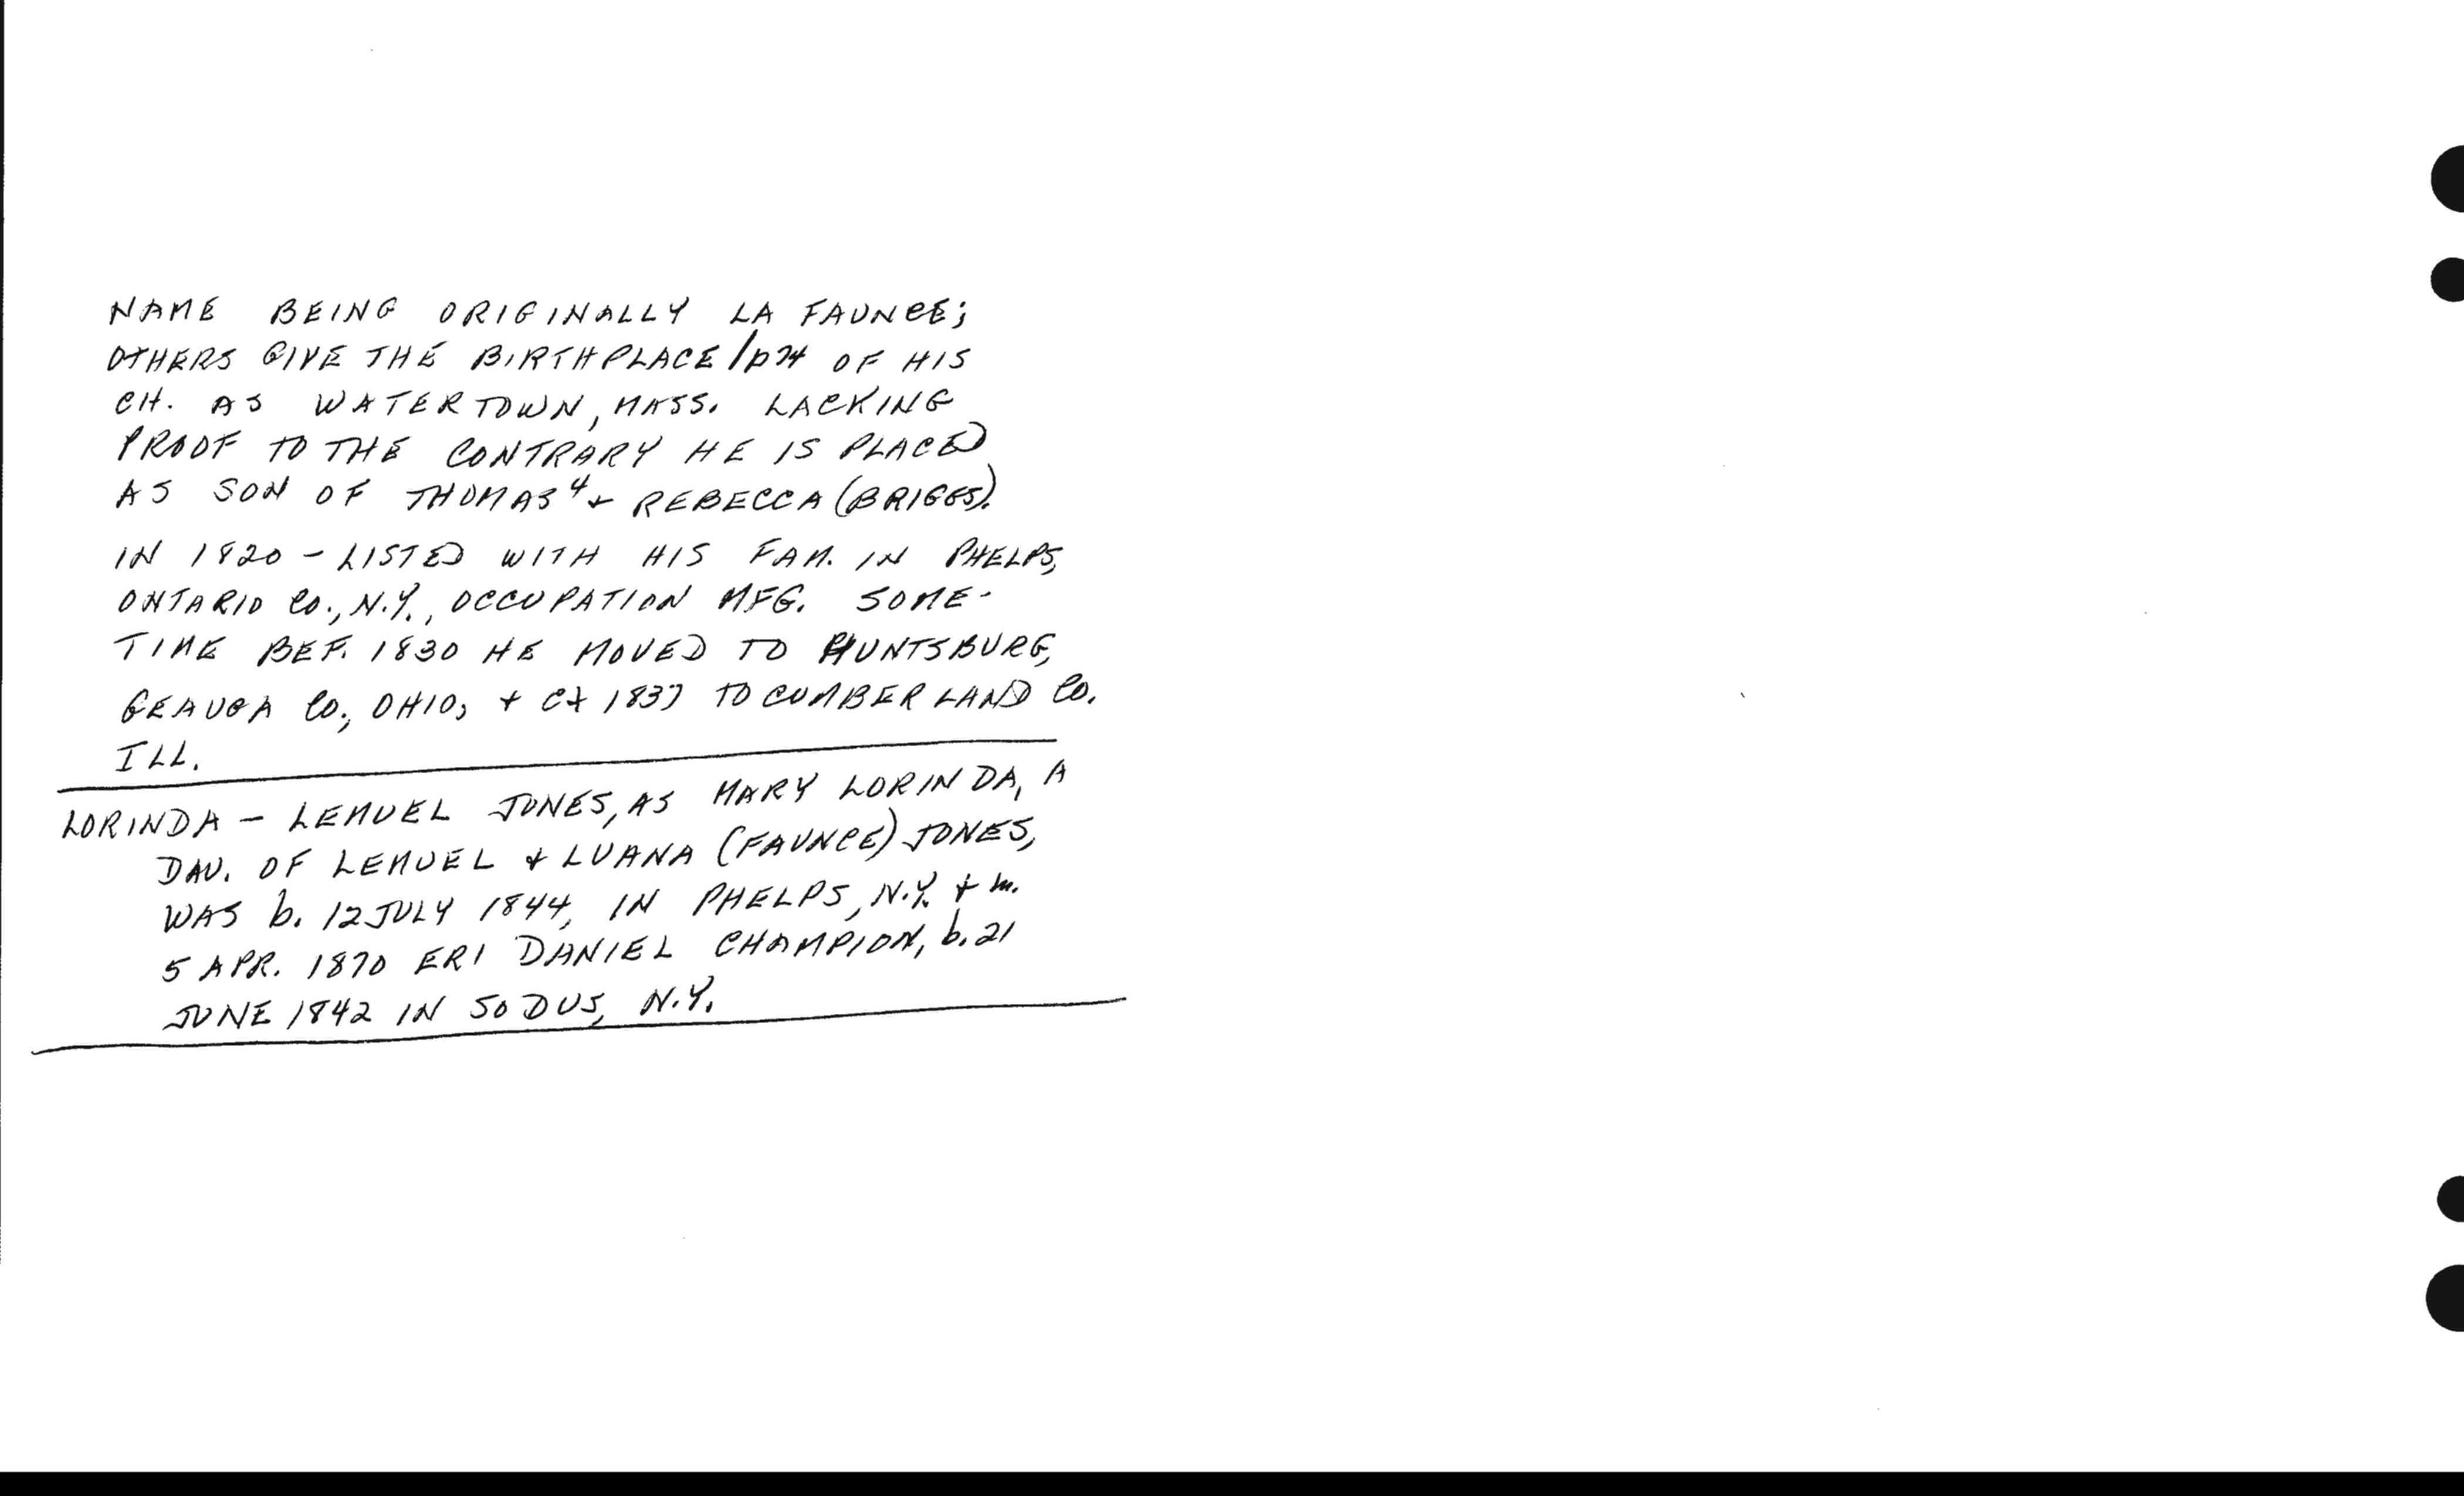 NAME BEING ORIGINALLY LA FAUNCE;
OTHERS GIVE THE BIRTHPLACE /p74 OF HIS
CH. AS WATERTOWN, MASS. LACKING
PROOF TO THE CONTRARY HE IS PLACED
AS SON OF THOMAS⁴ + REBECCA (BRIGGS).
IN 1820 - LISTED WITH HIS FAM. IN PHELPS,
ONTARIO CO., N.Y., OCCUPATION MFG. SOME-
TIME BEF. 1830 HE MOVED TO HUNTSBURG,
GEAUGA CO., OHIO, + 1837 TO CUMBERLAND CO.
ILL.
LORINDA - LEMUEL JONES, AS MARY LORINDA, A
DAU. OF LEMUEL + LUANA (FAUNCE) JONES,
WAS b. 12 JULY 1844, IN PHELPS, N.Y. + m.
5 APR. 1870 ERI DANIEL CHAMPION, b. 21
JUNE 1842 IN SODUS, N.Y.